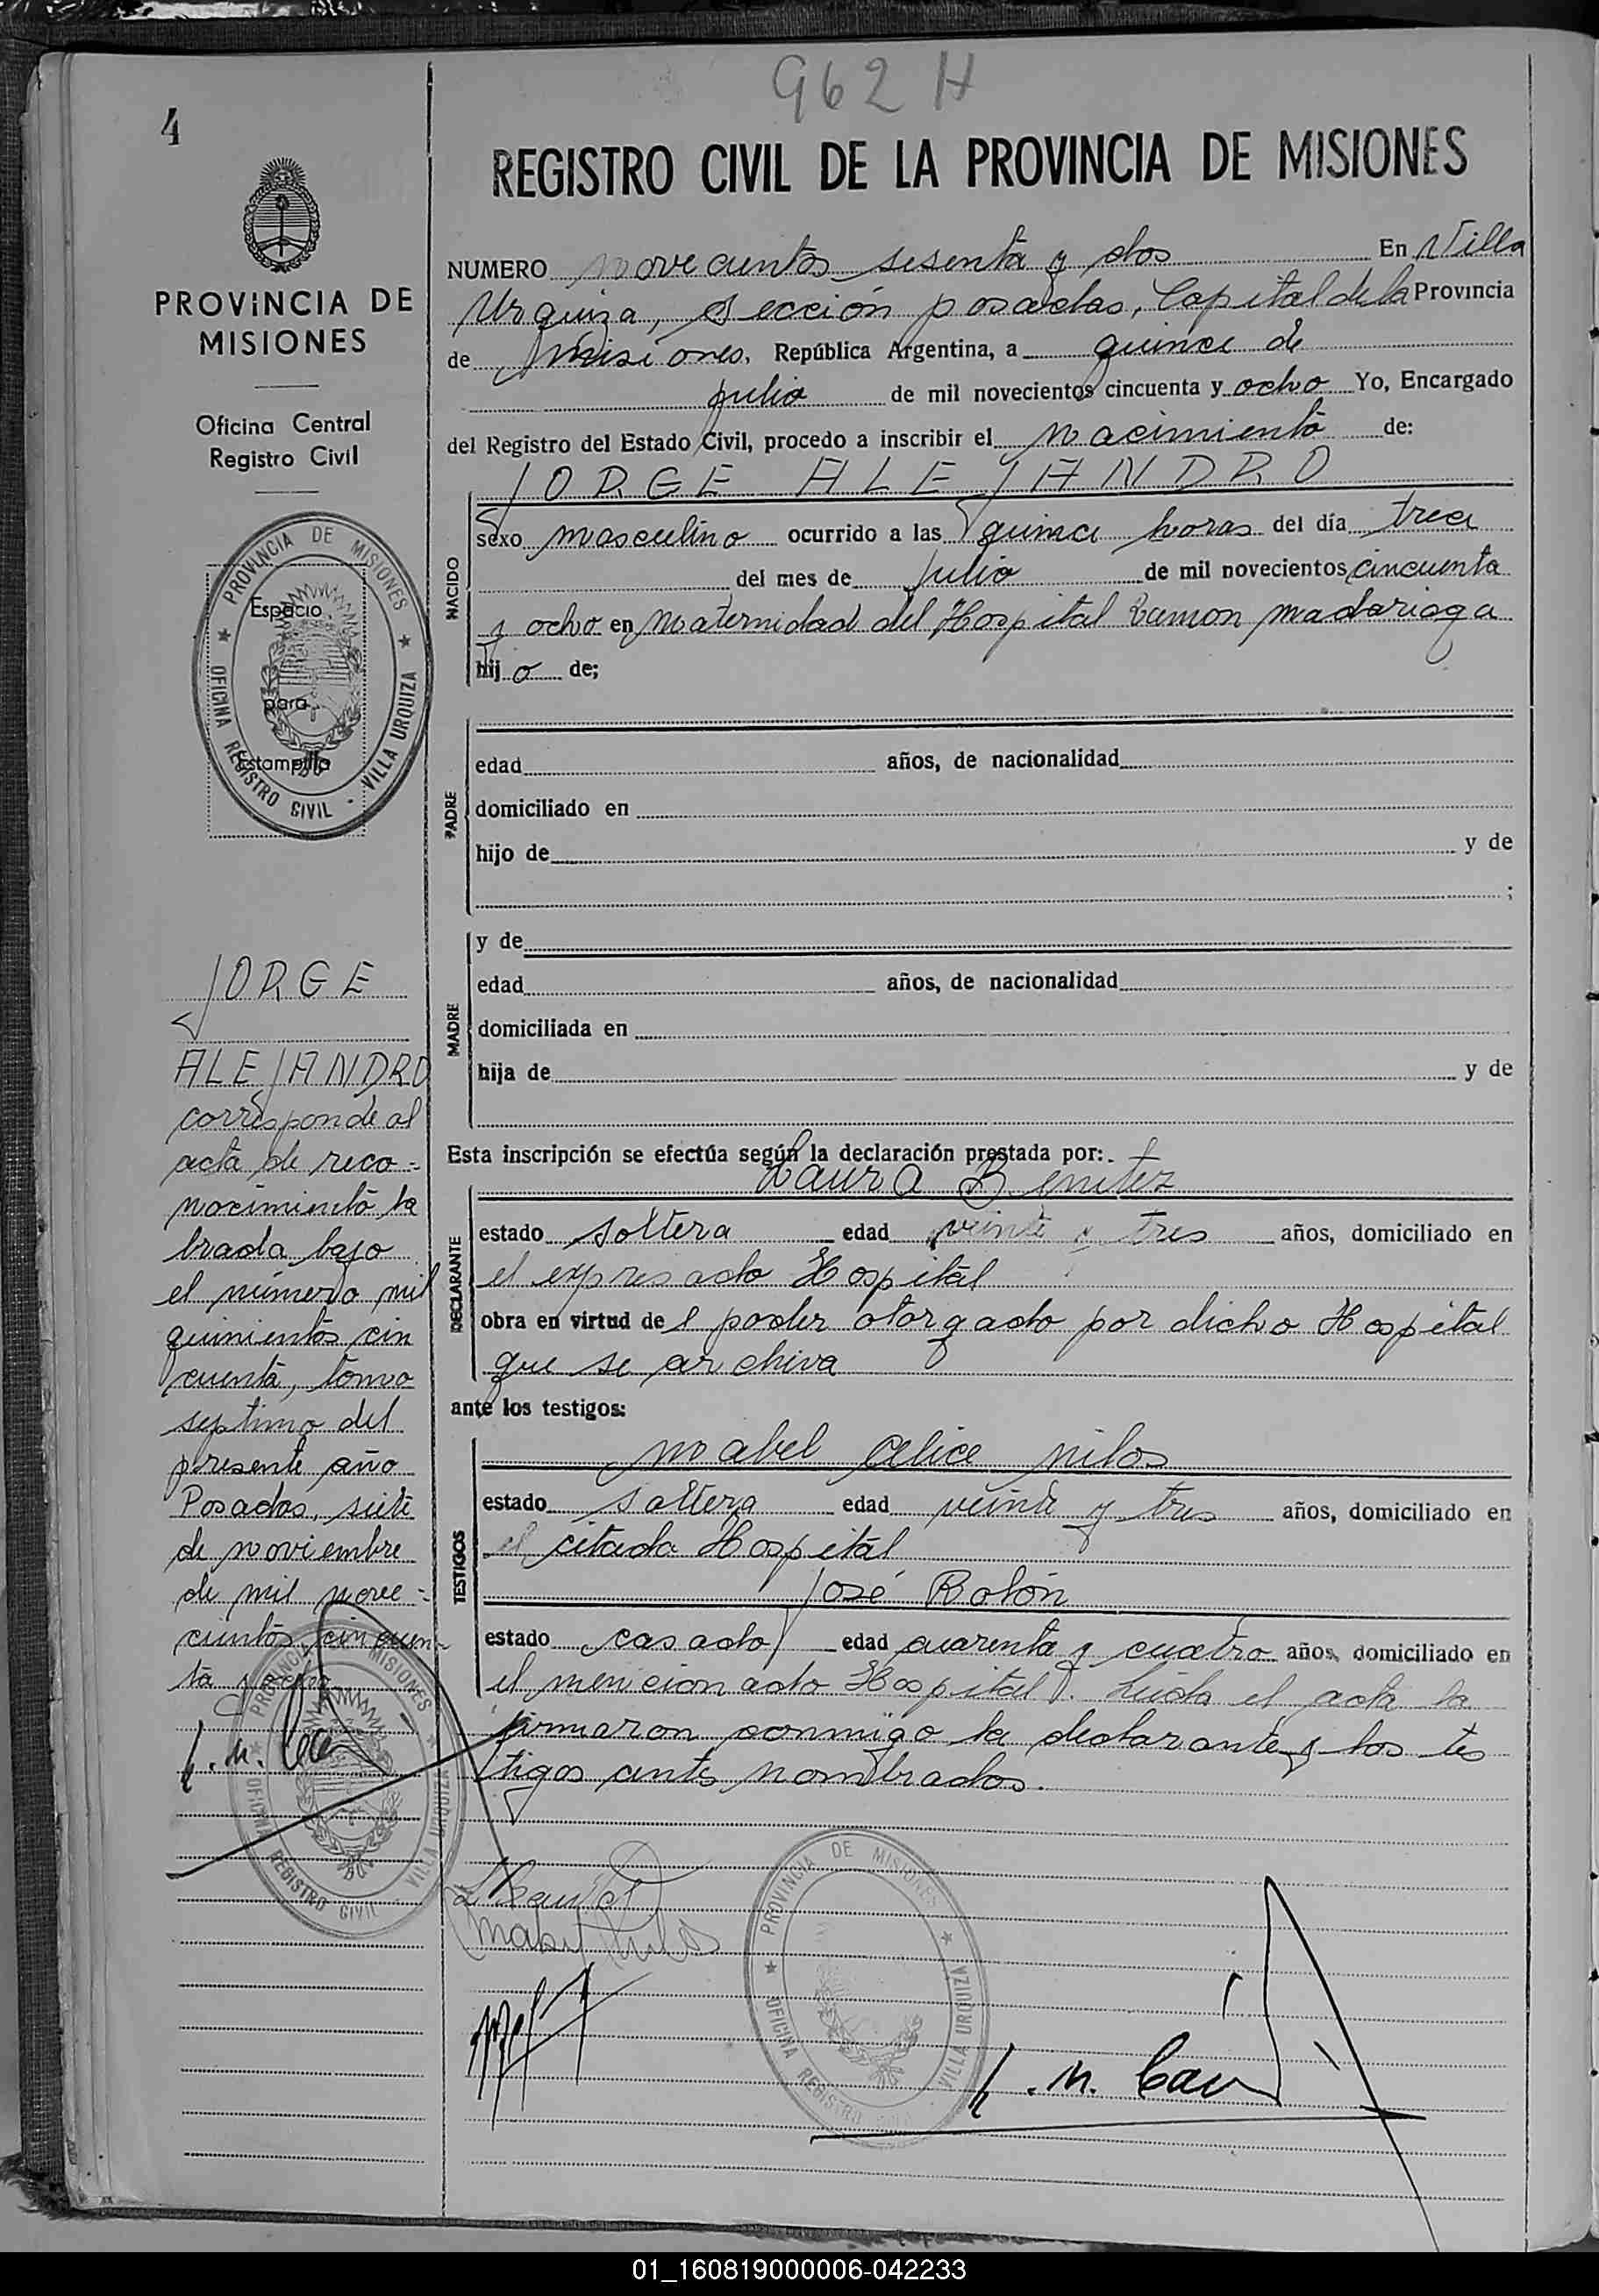 962 H
4
REGISTRO CIVIL DE LA PROVINCIA DE MISIONES
PROVINCIA DE
MISIONES
Oficina Central
Registro Civil
PROVINCIA DE MISIONES
OFICINA REGISTRO CIVIL - VILLA URQUIZA
Espacio
para
Estampilla
JORGE
ALEJANDRO
corresponde al
acta de reco-
nocimiento la
brada bajo
el número mil
quinientos cin
cuenta, tomo
septimo del
presente año
Posadas, siete
de noviembre
de mil nove-
cientos cincuen
ta y ocho
PROVINCIA MISIONES
OFICINA REGISTRO CIVIL VILLA URQUIZA
NUMERO novecientos sesenta y dos En Villa
Urquiza, Sección posadas, Capital de la Provincia
de Misiones, República Argentina, a quince de
julio de mil novecientos cincuenta y ocho Yo, Encargado
del Registro del Estado Civil, procedo a inscribir el nacimiento de:
JORGE ALEJANDRO
NACIDO
sexo masculino ocurrido a las quince horas del día trece
del mes de Julio de mil novecientos cincuenta
y ocho en Maternidad del Hospital Ramon madariaga
hijo de;
PADRE
edad años, de nacionalidad
domiciliado en
hijo de y de
;
MADRE
y de
edad años, de nacionalidad
domiciliada en
hija de y de
Esta inscripción se efectúa según la declaración prestada por:
Laura Benitez
DECLARANTE
estado soltera edad veinte y tres años, domiciliado en
el expresado Hospital
obra en virtud del poder otorgado por dicho Hospital
que se archiva
ante los testigos:
TESTIGOS
mabel Alice nilos
estado soltera edad veinte y tres años, domiciliado en
el citado Hospital
José Rolón
estado casado edad cuarenta y cuatro años, domiciliado en
el mencionado Hospital. Leida el acta la
firmaron conmigo la declarante y los tes
tigos antes nombrados.
PROVINCIA DE MISIONES
OFICINA REGISTRO CIVIL VILLA URQUIZA
01_160819000006-042233